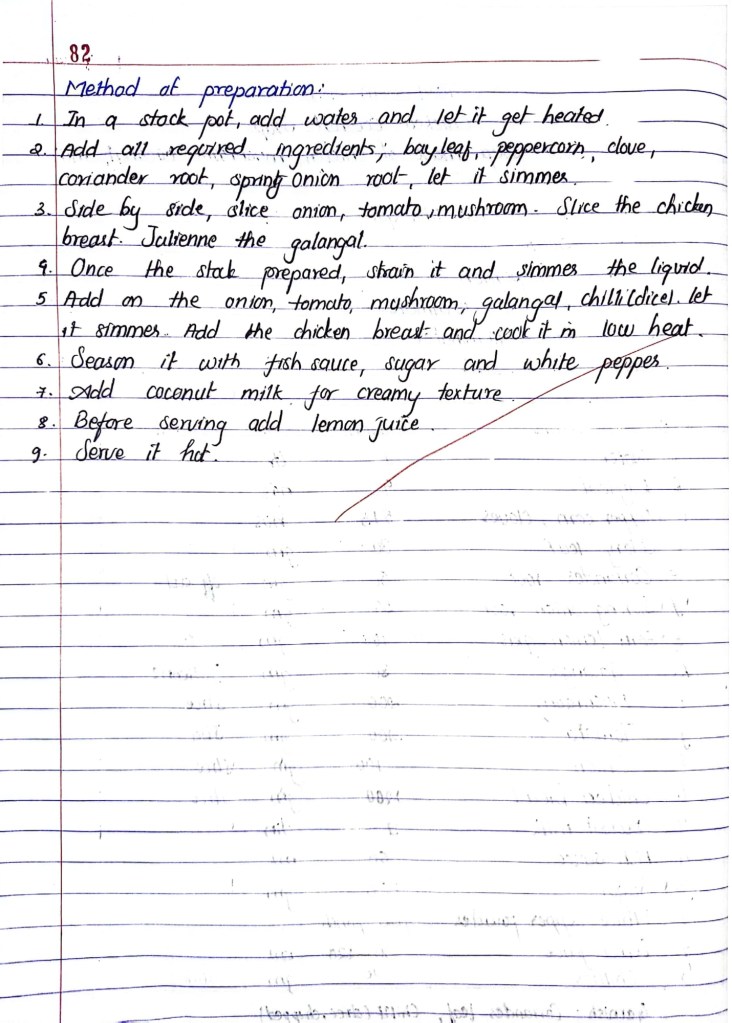 82
Method of preparation:
1. In a stock pot, add water and let it get heated.
2. Add all required ingredients; bay leaf, peppercorn, clove,
coriander root, spring onion root, let it simmer.
3. Side by side, slice onion, tomato, mushroom. Slice the chicken
breast. Julienne the galangal.
4. Once the stok prepared, strain it and simmer the liquid.
5 Add on the onion, tomato, mushroom, galangal, chilli(dice). let
it simmer. Add the chicken breast and cook it in low heat.
6. Season it with fish sauce, sugar and white pepper.
7. Add coconut milk for creamy texture.
8. Before serving add lemon juice.
9. Serve it hot.